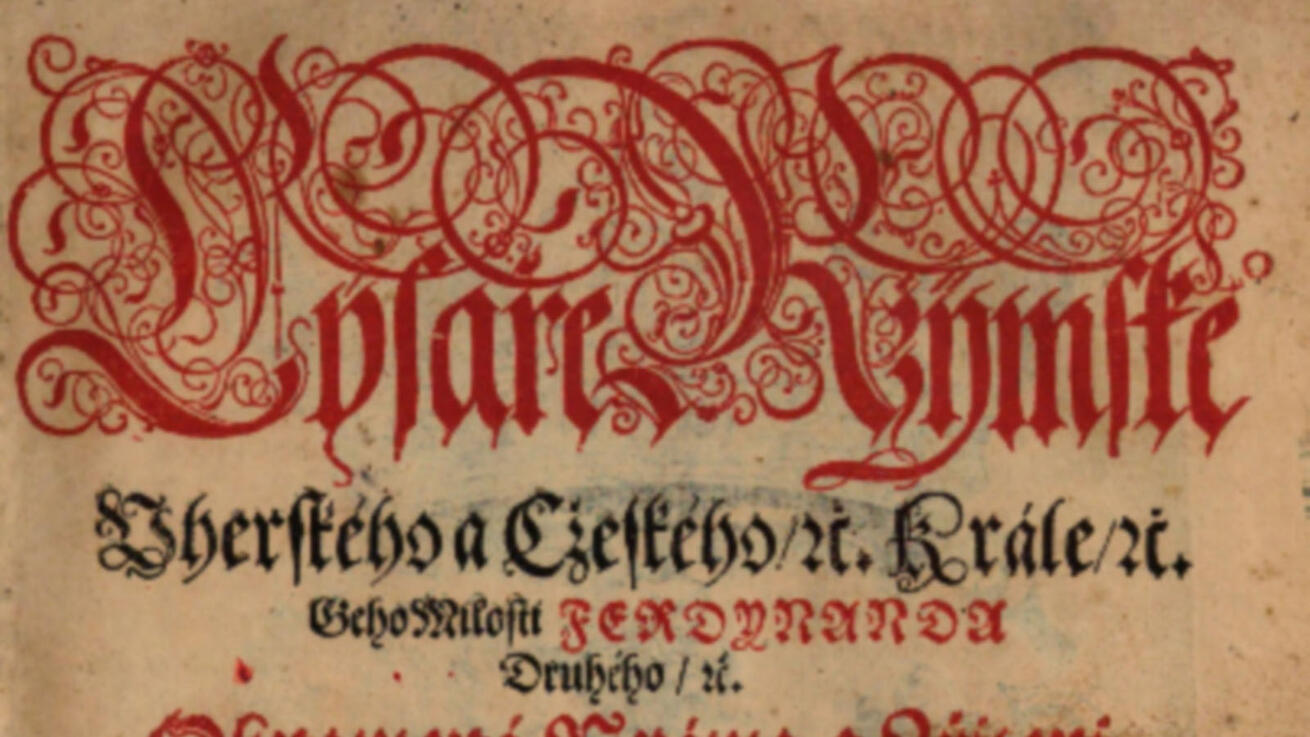 Cýſare Rzýmſké
Vherſkého a Czeſkého/ꝛč. Krále/ꝛč.
Geho Miloſti FERDYNANDA
Druhého / ꝛč.